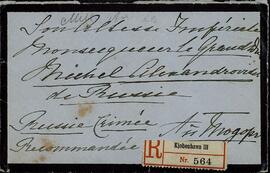 Son Altesse Impériale
Monseigneur le Grand Duc
Michel Alexandrovitch
de Russie
Russie Crimée
Recommandée
R
Kjobenhavn III
Nr. 564